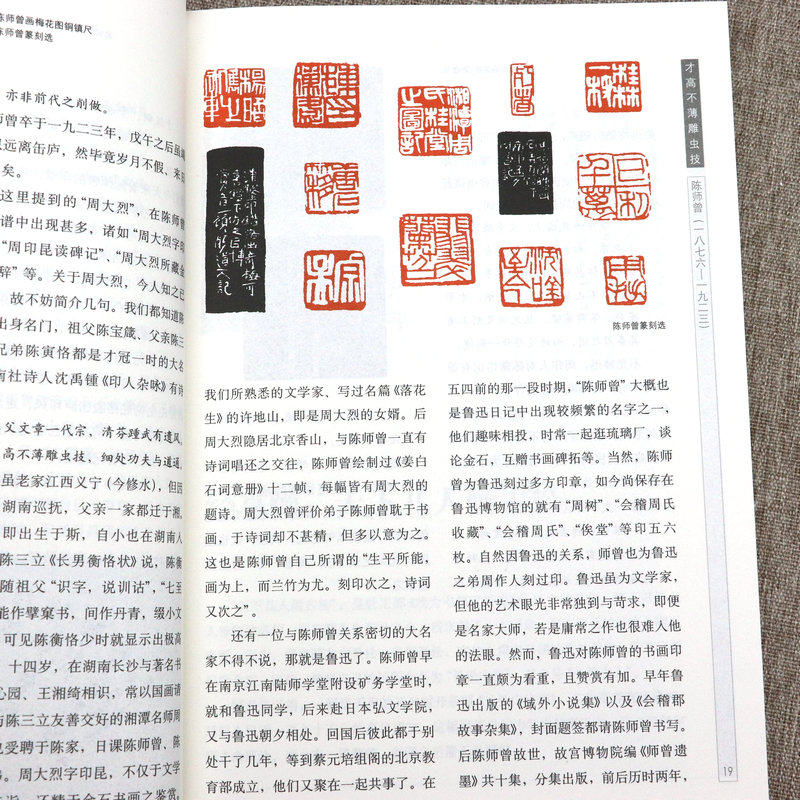 陈师曾画梅花图铜镇尺
陈师曾篆刻选
亦非前代之削做。
师曾卒于一九二三年，戊午之后虽
远离缶庐，然毕竟岁月不假、来
矣。
这里提到的“周大烈”，在陈师曾
谱中出现甚多，诸如“周大烈字印
“周印昆读碑记”、“周大烈所藏金
辞”等。关于周大烈，今人知之已
故不妨简介几句。我们都知道陈
出身名门，祖父陈宝箴、父亲陈三
兄弟陈寅恪都是才冠一时的大名
南社诗人沈禹锺《印人杂咏》有诗
父文章一代宗，清芬踵武有遗风。
高不薄雕虫技，细处功夫与道通。
虽老家江西义宁（今修水），但因
湖南巡抚，父亲一家都迁于湘，
即出生于斯，自小也在湖南人
陈三立《长男衡恪状》说，陈衡
随祖父“识字，说训诂”，“七至
能作擘窠书，间作丹青，缀小文
可见陈衡恪少时就显示出极高
十四岁，在湖南长沙与著名书
心园、王湘绮相识，常以国画请
与陈三立友善交好的湘潭名师周
也受聘于陈家，日课陈师曾、陈
周大烈字印昆，不仅于文学
近，还精于金石书画之鉴赏。
陈师曾篆刻选
我们所熟悉的文学家、写过名篇《落花
生》的许地山，即是周大烈的女婿。后
周大烈隐居北京香山，与陈师曾一直有
诗词唱还之交往，陈师曾绘制过《姜白
石词意册》十二帧，每幅皆有周大烈的
题诗。周大烈曾评价弟子陈师曾耽于书
画，于诗词却不甚精，但多以意为之。
这也是陈师曾自己所谓的“生平所能，
画为上，而兰竹为尤。刻印次之，诗词
又次之”。
还有一位与陈师曾关系密切的大名
家不得不说，那就是鲁迅了。陈师曾早
在南京江南陆师学堂附设矿务学堂时，
就和鲁迅同学，后来赴日本弘文学院，
又与鲁迅朝夕相处。回国后彼此都于别
处干了几年，等到蔡元培组阁的北京教
育部成立，他们又聚在一起共事了。在
五四前的那一段时期，“陈师曾”大概也
是鲁迅日记中出现较频繁的名字之一，
他们趣味相投，时常一起逛琉璃厂，谈
论金石，互赠书画碑拓等。当然，陈师
曾为鲁迅刻过多方印章，如今尚保存在
鲁迅博物馆的就有“周树”、“会稽周氏
收藏”、“会稽周氏”、“俟堂”等印五六
枚。自然因鲁迅的关系，师曾也为鲁迅
之弟周作人刻过印。鲁迅虽为文学家，
但他的艺术眼光非常独到与苛求，即便
是名家大师，若是庸常之作也很难入他
的法眼。然而，鲁迅对陈师曾的书画印
章一直颇为看重，且赞赏有加。早年鲁
迅出版的《域外小说集》以及《会稽郡
故事杂集》，封面题签都请陈师曾书写。
后陈师曾故世，故宫博物院编《师曾遗
墨》共十集，分集出版，前后历时两年，
才高不薄雕虫技
陈师曾（一八七六—一九二三）
19